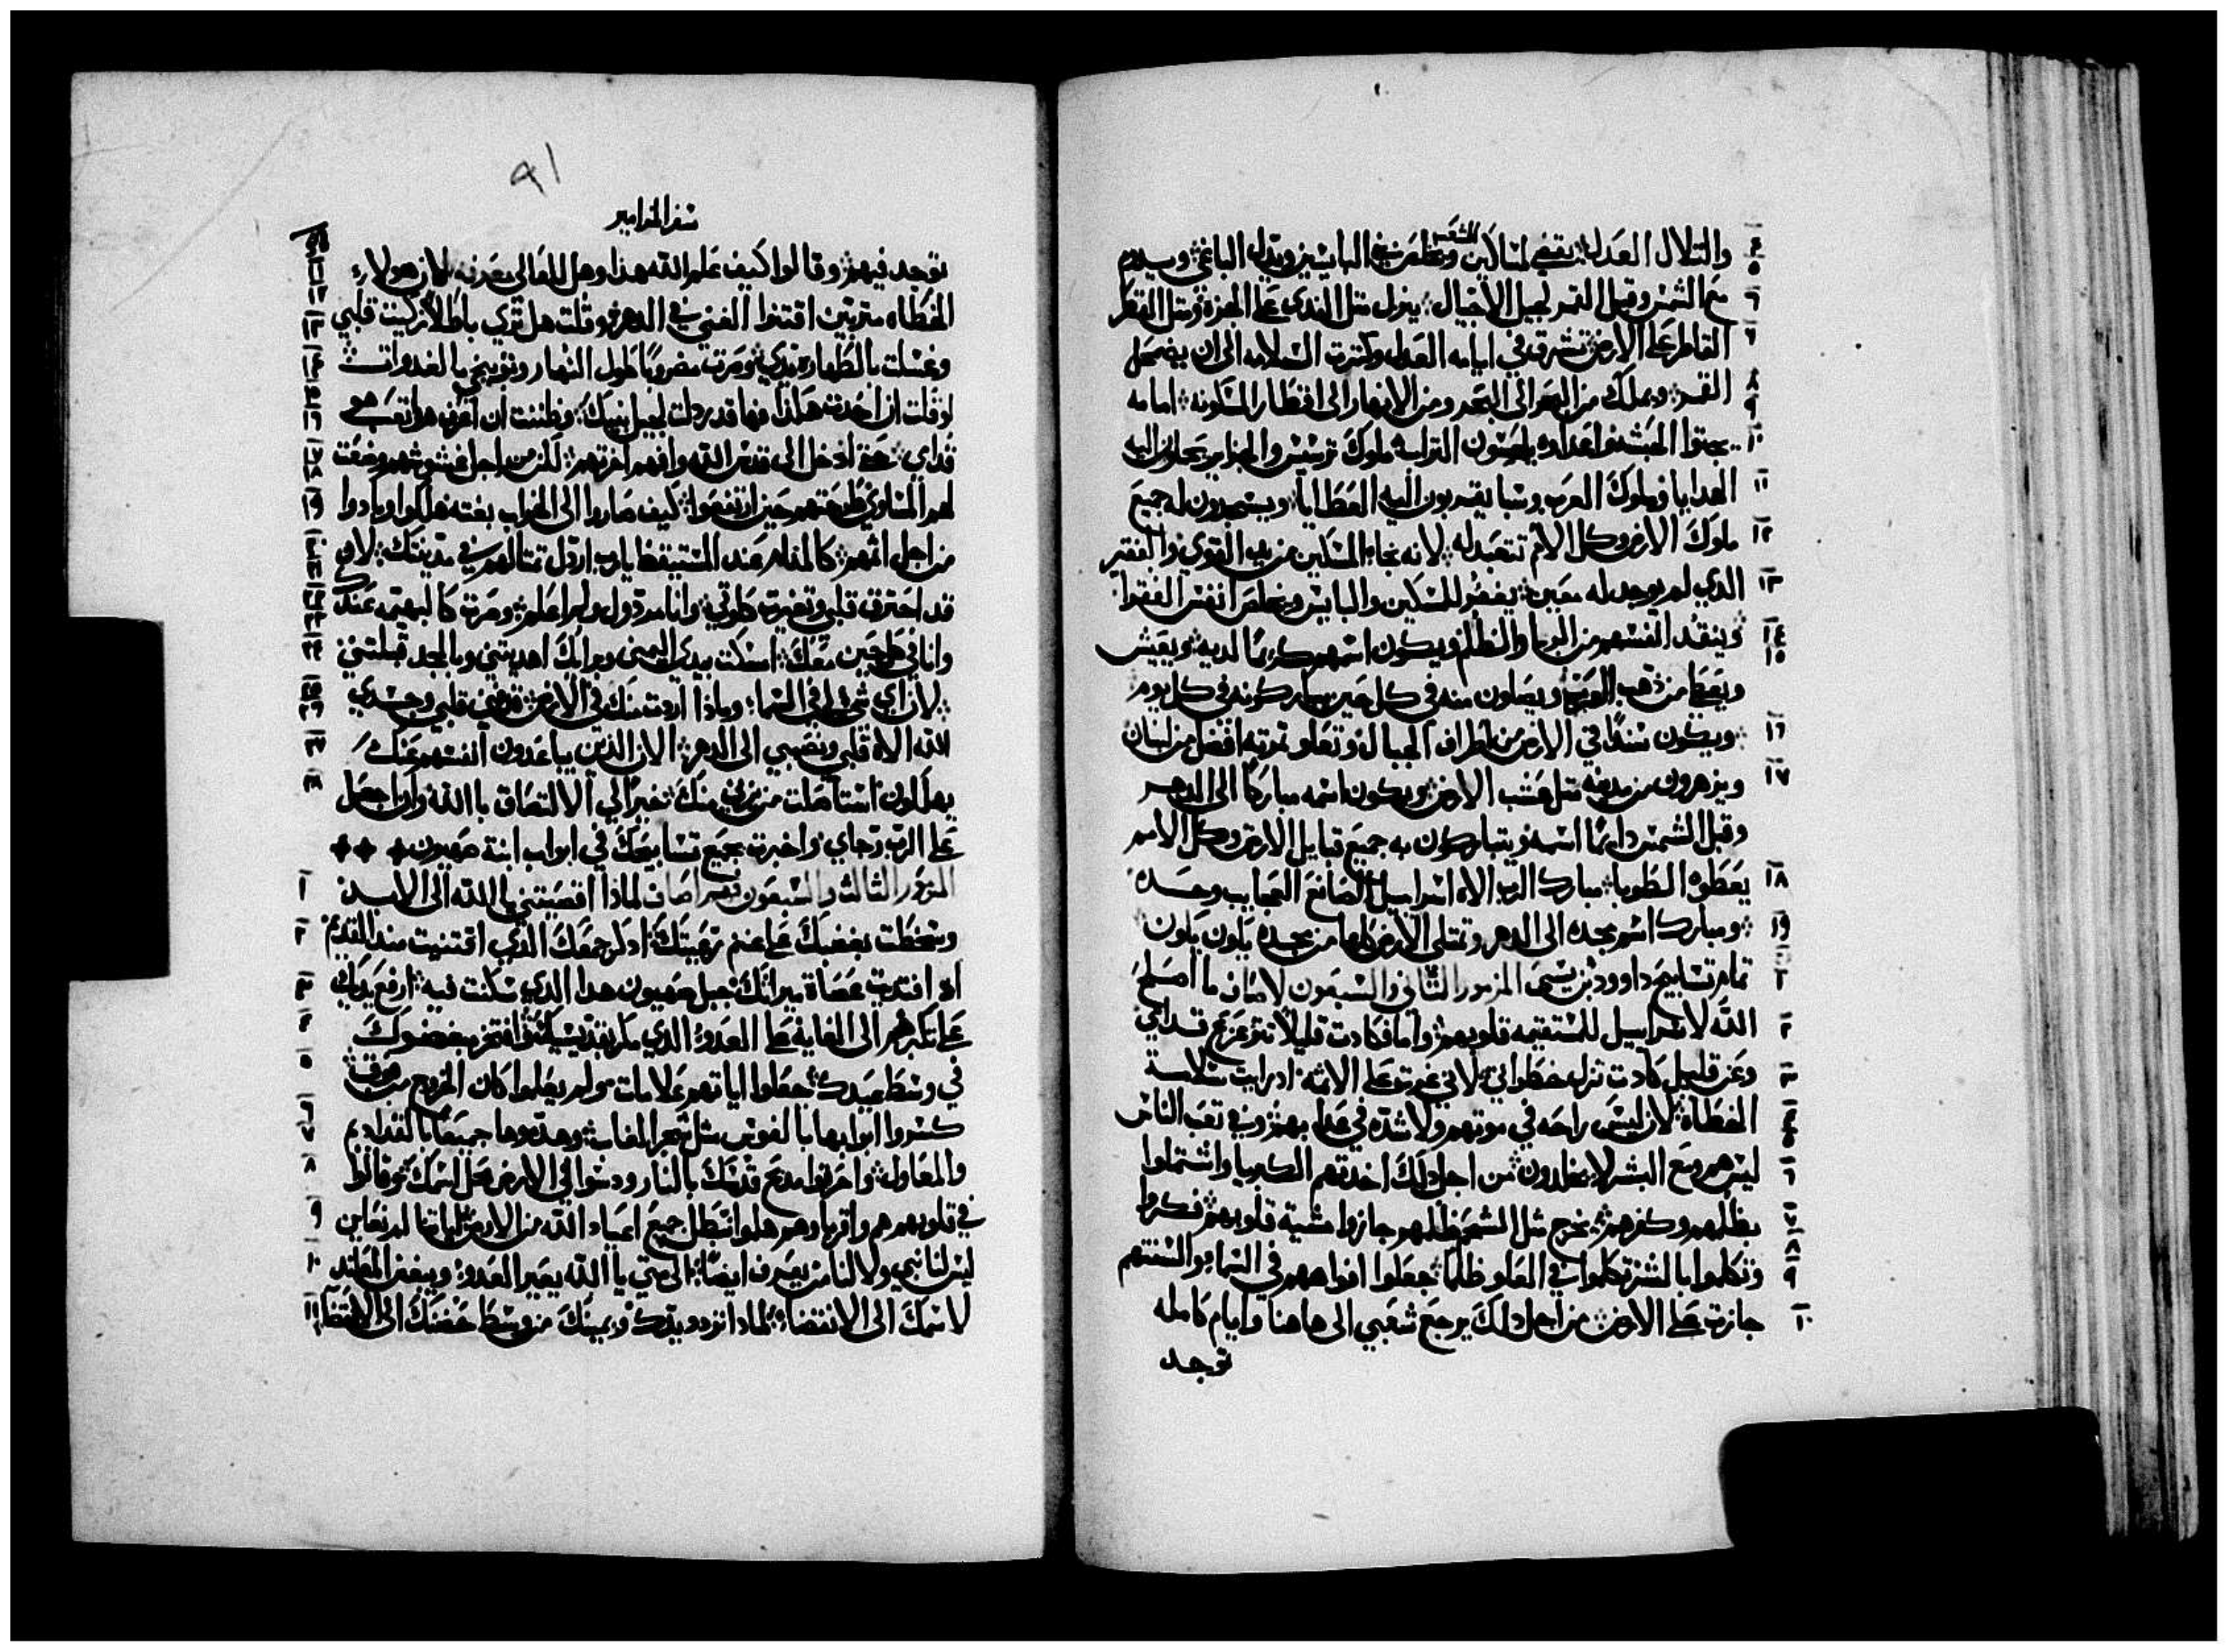 والتلال العدل يقضي لمساكين الشعب ويخلص بني البايسين ويذل الباغي ويدوم
مع الشمس وقبل القمر لجيل الاجيال ينزل مثل الندي علي الجزه ومثل القطر
القاطر علي الارض تشرق في ايامه العدل وكثرت السلامه الي ان يضمحل
القمر ويملك من البحر الي البحر ومن الانهار الي اقطار المسكونه امامه
يجثوا الحبش واعداه يلحسون التراب ملوك ترسيس والجزاير يحملون اليه
الهدايا وملوك العرب وسبا يقربون اليه العطايا ويسجدون له جميع
ملوك الارض وكل الامم تتعبد له لانه نجا المسكين من يد القوي والفقير
الذي لم يوجد له معين يغفر للمسكين والبايس ويخلص انفس الفقرا
وينقد انفسهم من الربا والظلم ويكون اسمهم كريما لديه ويعيش
ويعطا من ذهب العرب ويصلون منه في كل حين يباركونه في كل يوم
ويكون سندا في الارض من اطراف الجبال وتعلو ثمرته افضل من لبنان
ويزهرون من مدينه مثل عشب الارض ويكون اسمه مباركا الي الدهر
وقبل الشمس دايما اسمه ويتباركون به جميع قبايل الارض وكل الامم
يعطوه الطوبا مبارك الرب الاه اسراييل الصانع العجايب وحده
ومبارك اسم مجده الي الدهر وتمتلي الارض كلها من مجده يكون يكون
تمام تسابيح داوود بن يسي المزمور الثاني والسبعون لاصاف ما اصلح
الله لاسراييل للمستقيمه قلوبهم واما فكادت قليلا تتزعزع قدامي
وعن قليل كادت تزل خطواتي لاني غيرت علي الاثمه اد رايت سلامة
الخطاة لان ليس راحه في موتهم ولا شده في عدابهم وفي تعب الناس
ليس هم ومع البشر لا يجلدون من اجل دلك اخدتهم الكبريا واشتملوا
بظلمهم وكفرهم يخرج مثل الشحم ظلمهم جازوا مشية قلوبهم فكروا
وتكلموا بالشر تكلموا في العلو ظلما جعلوا افواههم في السما والسنتهم
جازت علي الارض من اجل دلك يرجع شعبي الي هاهنا وايام كامله
توجد
٩١
سفر المزامير
توجد فيهم وقالوا كيف علم الله هذا وهل للعالي معرفه لان هولاء
الخطاه مترتبين اقتنوا الغني في الدهر وقلت هل تري باطلا زكيت قلبي
وغسلت بالطهاره يدي وصرت مضروبا طول النهار وتوبيخي بالغدوات
لو قلت ان احدث هكذا فها قد رذلت لجيل بنيك وظننت ان اعرف هوا تعب هو
قدامي حتي ادخل الي قدس الله وافهم اخرتهم لكن من اجل غشوشهم وضعت
لهم المساوي طرحتهم حين ارتفعوا كيف صاروا الي الخراب بغته هلكوا وبادوا
من اجل اثمهم كالمنام عند المستيقظ يارب اردل تمثالهم في مدينتك لان
قد احترق قلبي وتغيرت كلوتي وانا مردول ولم اعلم وصرت كالبهيمه عندك
وانا في كل حين معك امسكت بيدي اليمني وبرايك اهديتني وبالمجد قبلتني
لان اي شي لي في السما وماذا اردت منك في الارض فني قلبي وجسدي
الله الاه قلبي ونصيبي الي الدهر الان الذين يباعدون انفسهم عنك
يهلكون استاصلت من يزني منك خير لي الالتصاق باالله وان اجعل
علي الرب رجاي واخبرت بجميع تسابيحك في ابواب ابنة صهيون
المزمور الثالث والسبعون لاصاف لماذا اقصيتني يا الله الي الابد
وسخطت بغضبك علي غنم رعيتك ادكر جمعك الذي اقتنيت مند القديم
اد افتديت عصاة ميراتك جبل صهيون هدا الدي سكنت فيه ارفع يديك
علي تكبرهم الي الغايه علي العدو الذي مكر بقديسيك وافتخر مبغضوك
في وسط عيدك جعلوا اياتهم علامات ولم يعلموا كان الخروج من فوق
كسروا ابوابها بالفوس مثل شجر الغاب وهدموها جميعا بالقداديم
والمعاول واحرقوا مدبح قدسك بالنار ودنسوا في الارض محل اسمك وقالوا
في قلوبهم هم واقرباوهم هلموا نبطل جميع اعياد الله من الارض اياتنا لم نعاين
ليس لنا نبي ولا لنا من يعرف ايضا الي متي يا الله يعير العدو ويبغض المعاند
لاسمك الي الانقضاء لمادا ترد ويدك ويمينك من وسط حضنك الي الانقضا